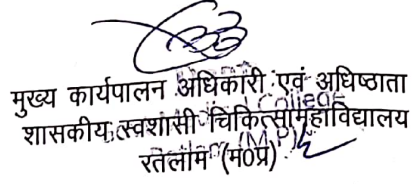 मुख्य कार्यपालन अधिकारी एवं अधिष्ठाता
शासकीय स्वशासी चिकित्सा महाविद्यालय
College
रतलाम (म0प्र)
(M.P.)